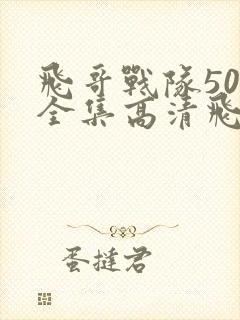 飛哥戰隊50
全集高清飛
蛋撻君